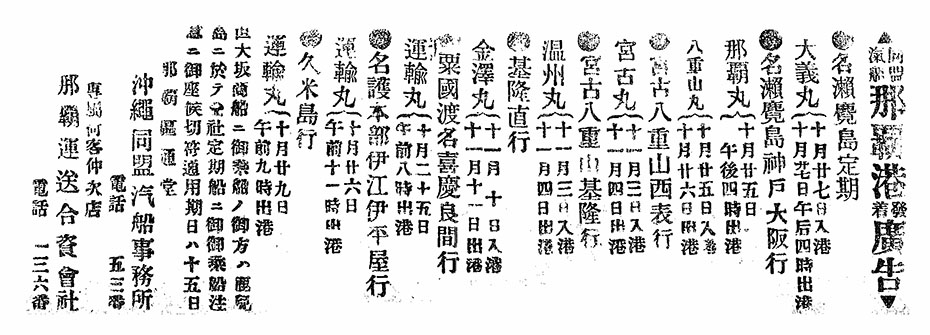 ▲同盟汽船那覇港發着廣告▼
◉名瀬鹿児島定期
大義丸 十月廿七日入港
十月 日午后四時出港
◉名瀬鹿児島神戸大阪行
那覇丸 十月廿五日
午後四時出港
八重山丸 十月廿五日入港
十月廿六日出港
◉宮古八重山西表行
宮古丸 十一月三日入港
十一月四日出港
◉宮古八重山基隆行
温州丸 十一月三日入港
十一月四日出港
◉基隆直行
金澤丸 十一月十日入港
十一月十一日出港
◉粟國渡名喜慶良間行
運輸丸 十月二十五日
午前八時出港
◉名護本部伊江伊平屋行
運輸丸 十月廿六日
午前十一時出港
◉久米島行
運輸丸 十月廿九日
午前九時出港
大坂商船ニ御乗船ノ御方ハ鹿児
島ニ於テ 社定期船ニ御乗船注
意ニ御座候切符通用期日ハ十五日
那覇區通堂
沖縄同盟汽船事務所
電話 五三番
専属荷客仲次店
那覇運送合資會社
電話 一三六番